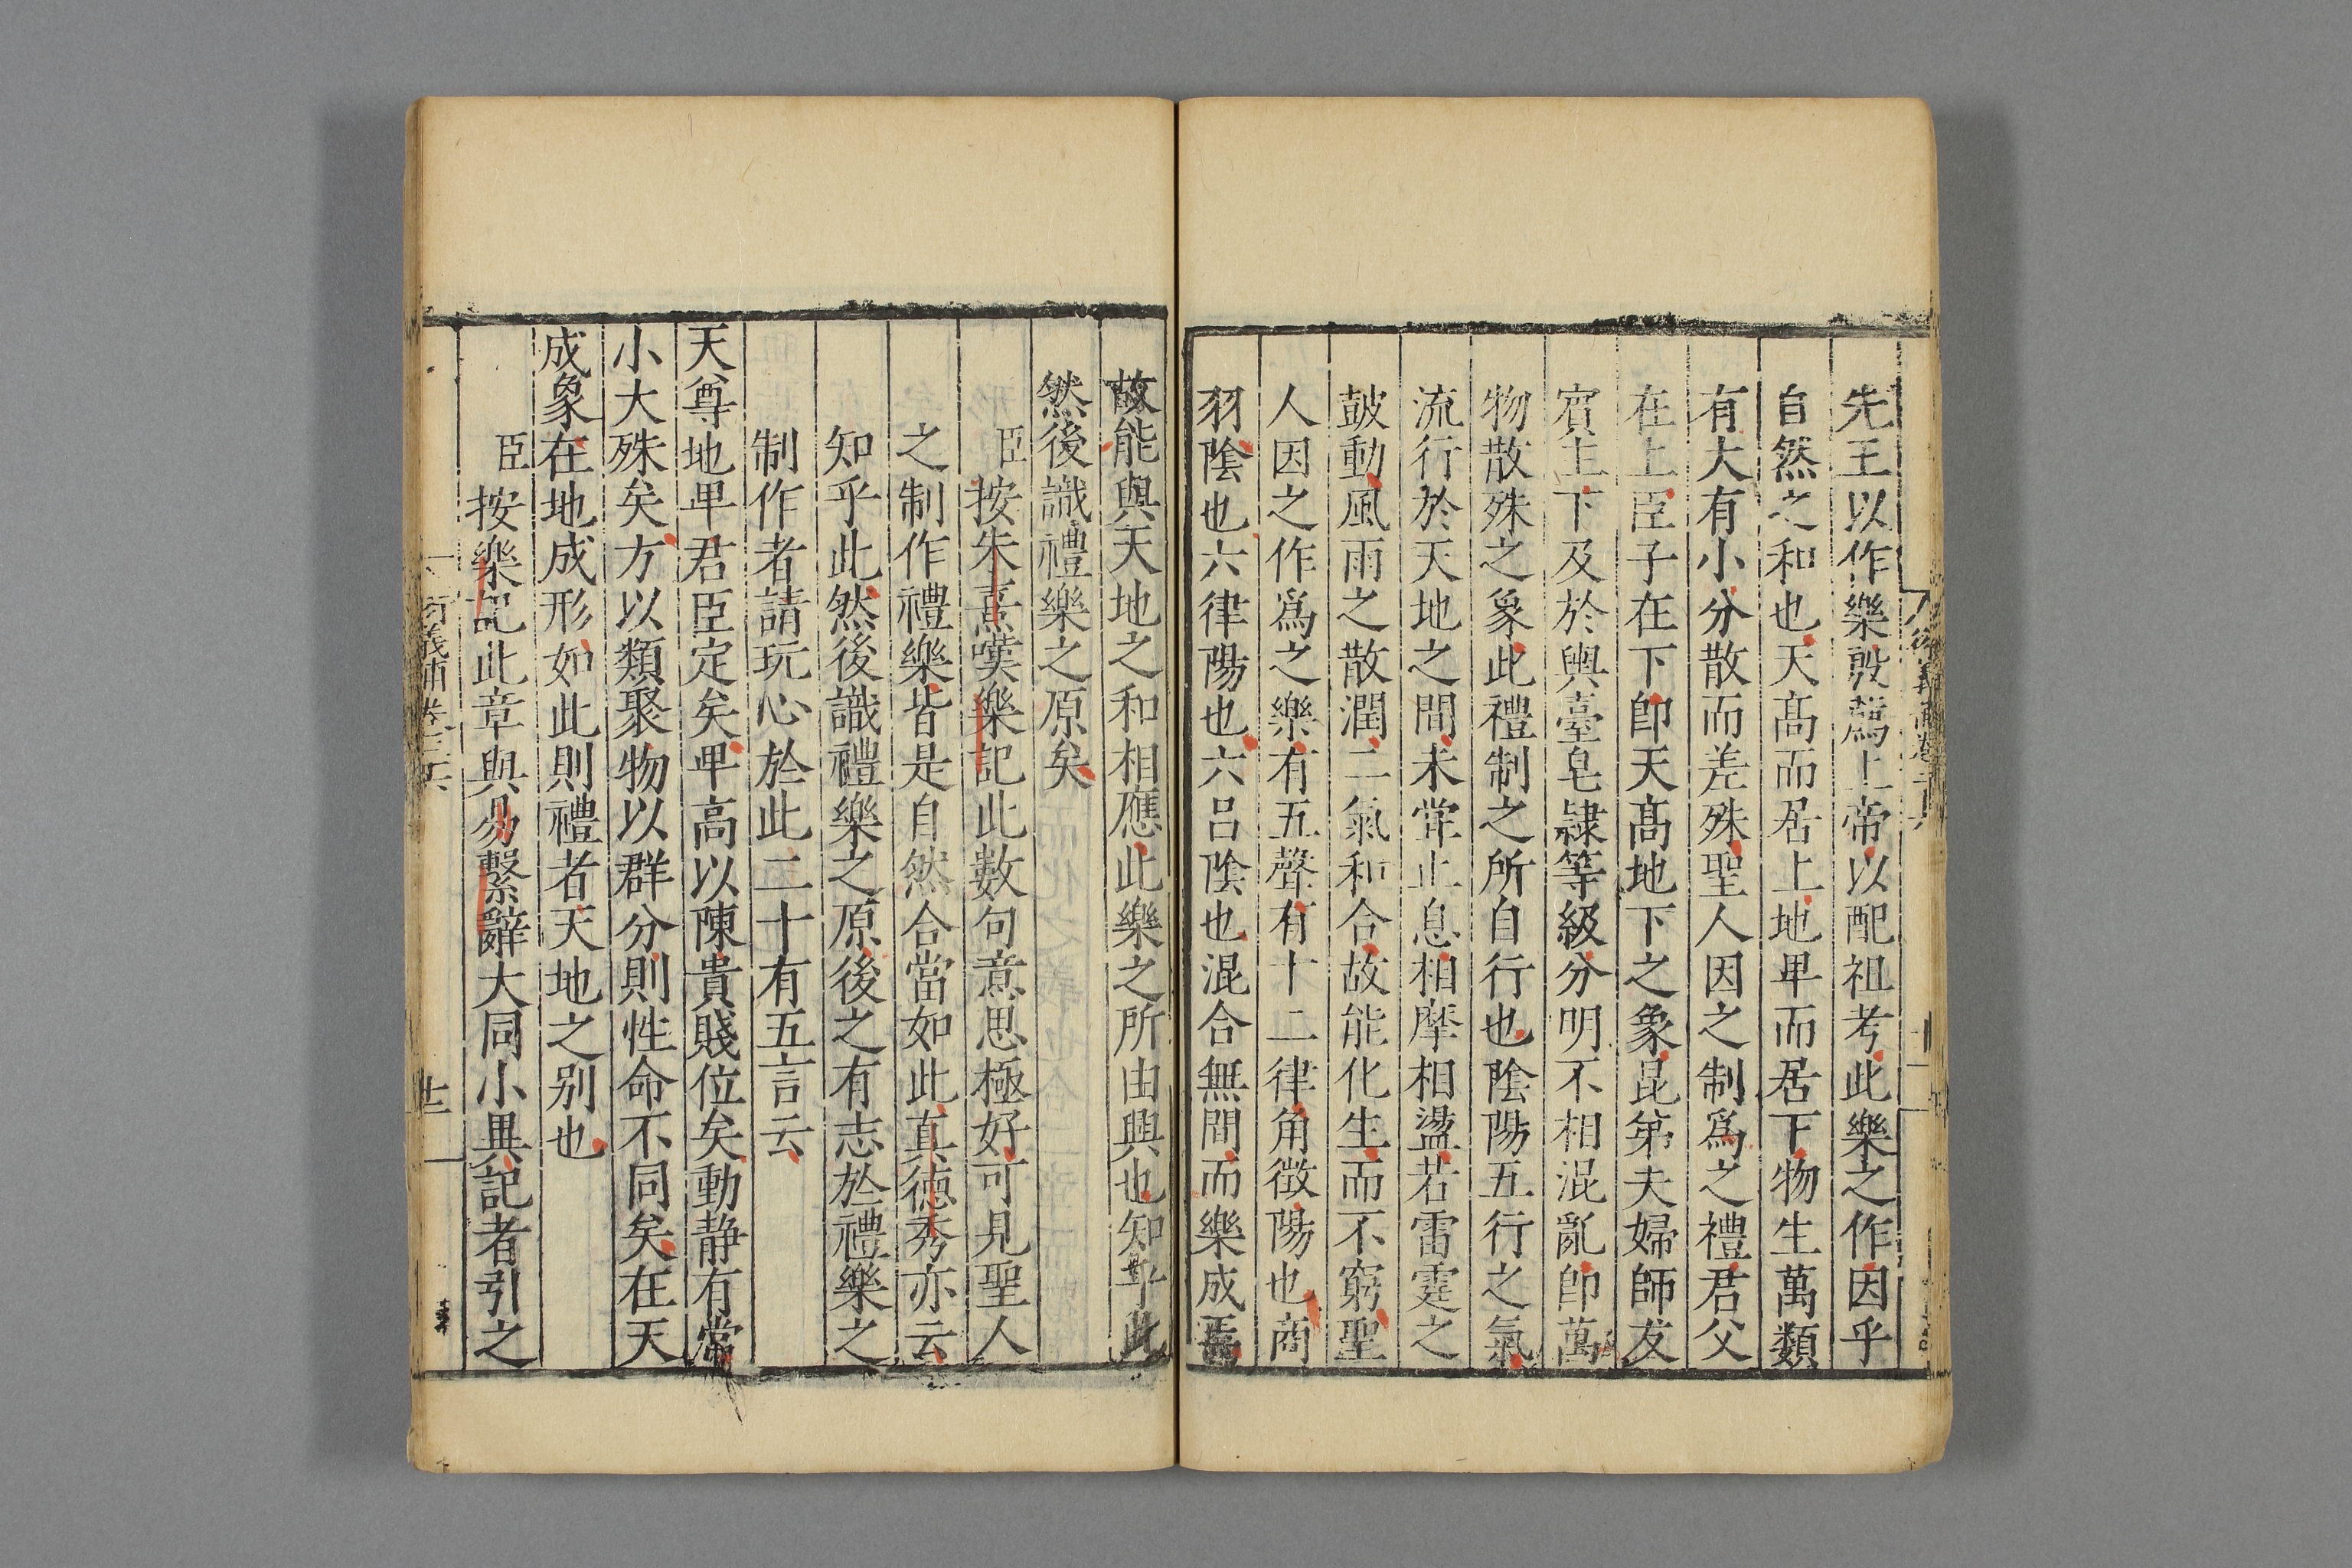 先王以作樂殷薦上帝以配祖考此樂之作因乎
自然之和也天髙而居上地卑而居下物生萬類
有大有小分散而差殊聖人因之制爲之禮君父
在上臣子在下卽天髙地下之象昆弟夫婦師友
賔主下及於輿臺皂隷等級分明不相混亂卽萬
物散殊之象此禮制之所自行也陰陽五行之氣
流行於天地之間未甞止息相摩相盪若雷霆之
鼓動風雨之散潤二氣和合故能化生而不窮聖
人因之作爲之樂有五聲有十二律角徴陽也商
羽陰也六律陽也六呂陰也混合無間而樂成焉
故能與天地之和相應此樂之所由興也知乎此
然後識禮樂之原矣
臣按朱熹嘆樂記此數句意思極好可見聖人
之制作禮樂皆是自然合當如此真徳秀亦云
知乎此然後識禮樂之原後之有志於禮樂之
制作者請玩心於此二十有五言云
天尊地卑君臣定矣卑高以陳貴賤位矣動静有常
小大殊矣方以類聚物以群分則性命不同矣在天
成象在地成形如此則禮者天地之别也
臣按樂記此章與易繫辭大同小異記者引之